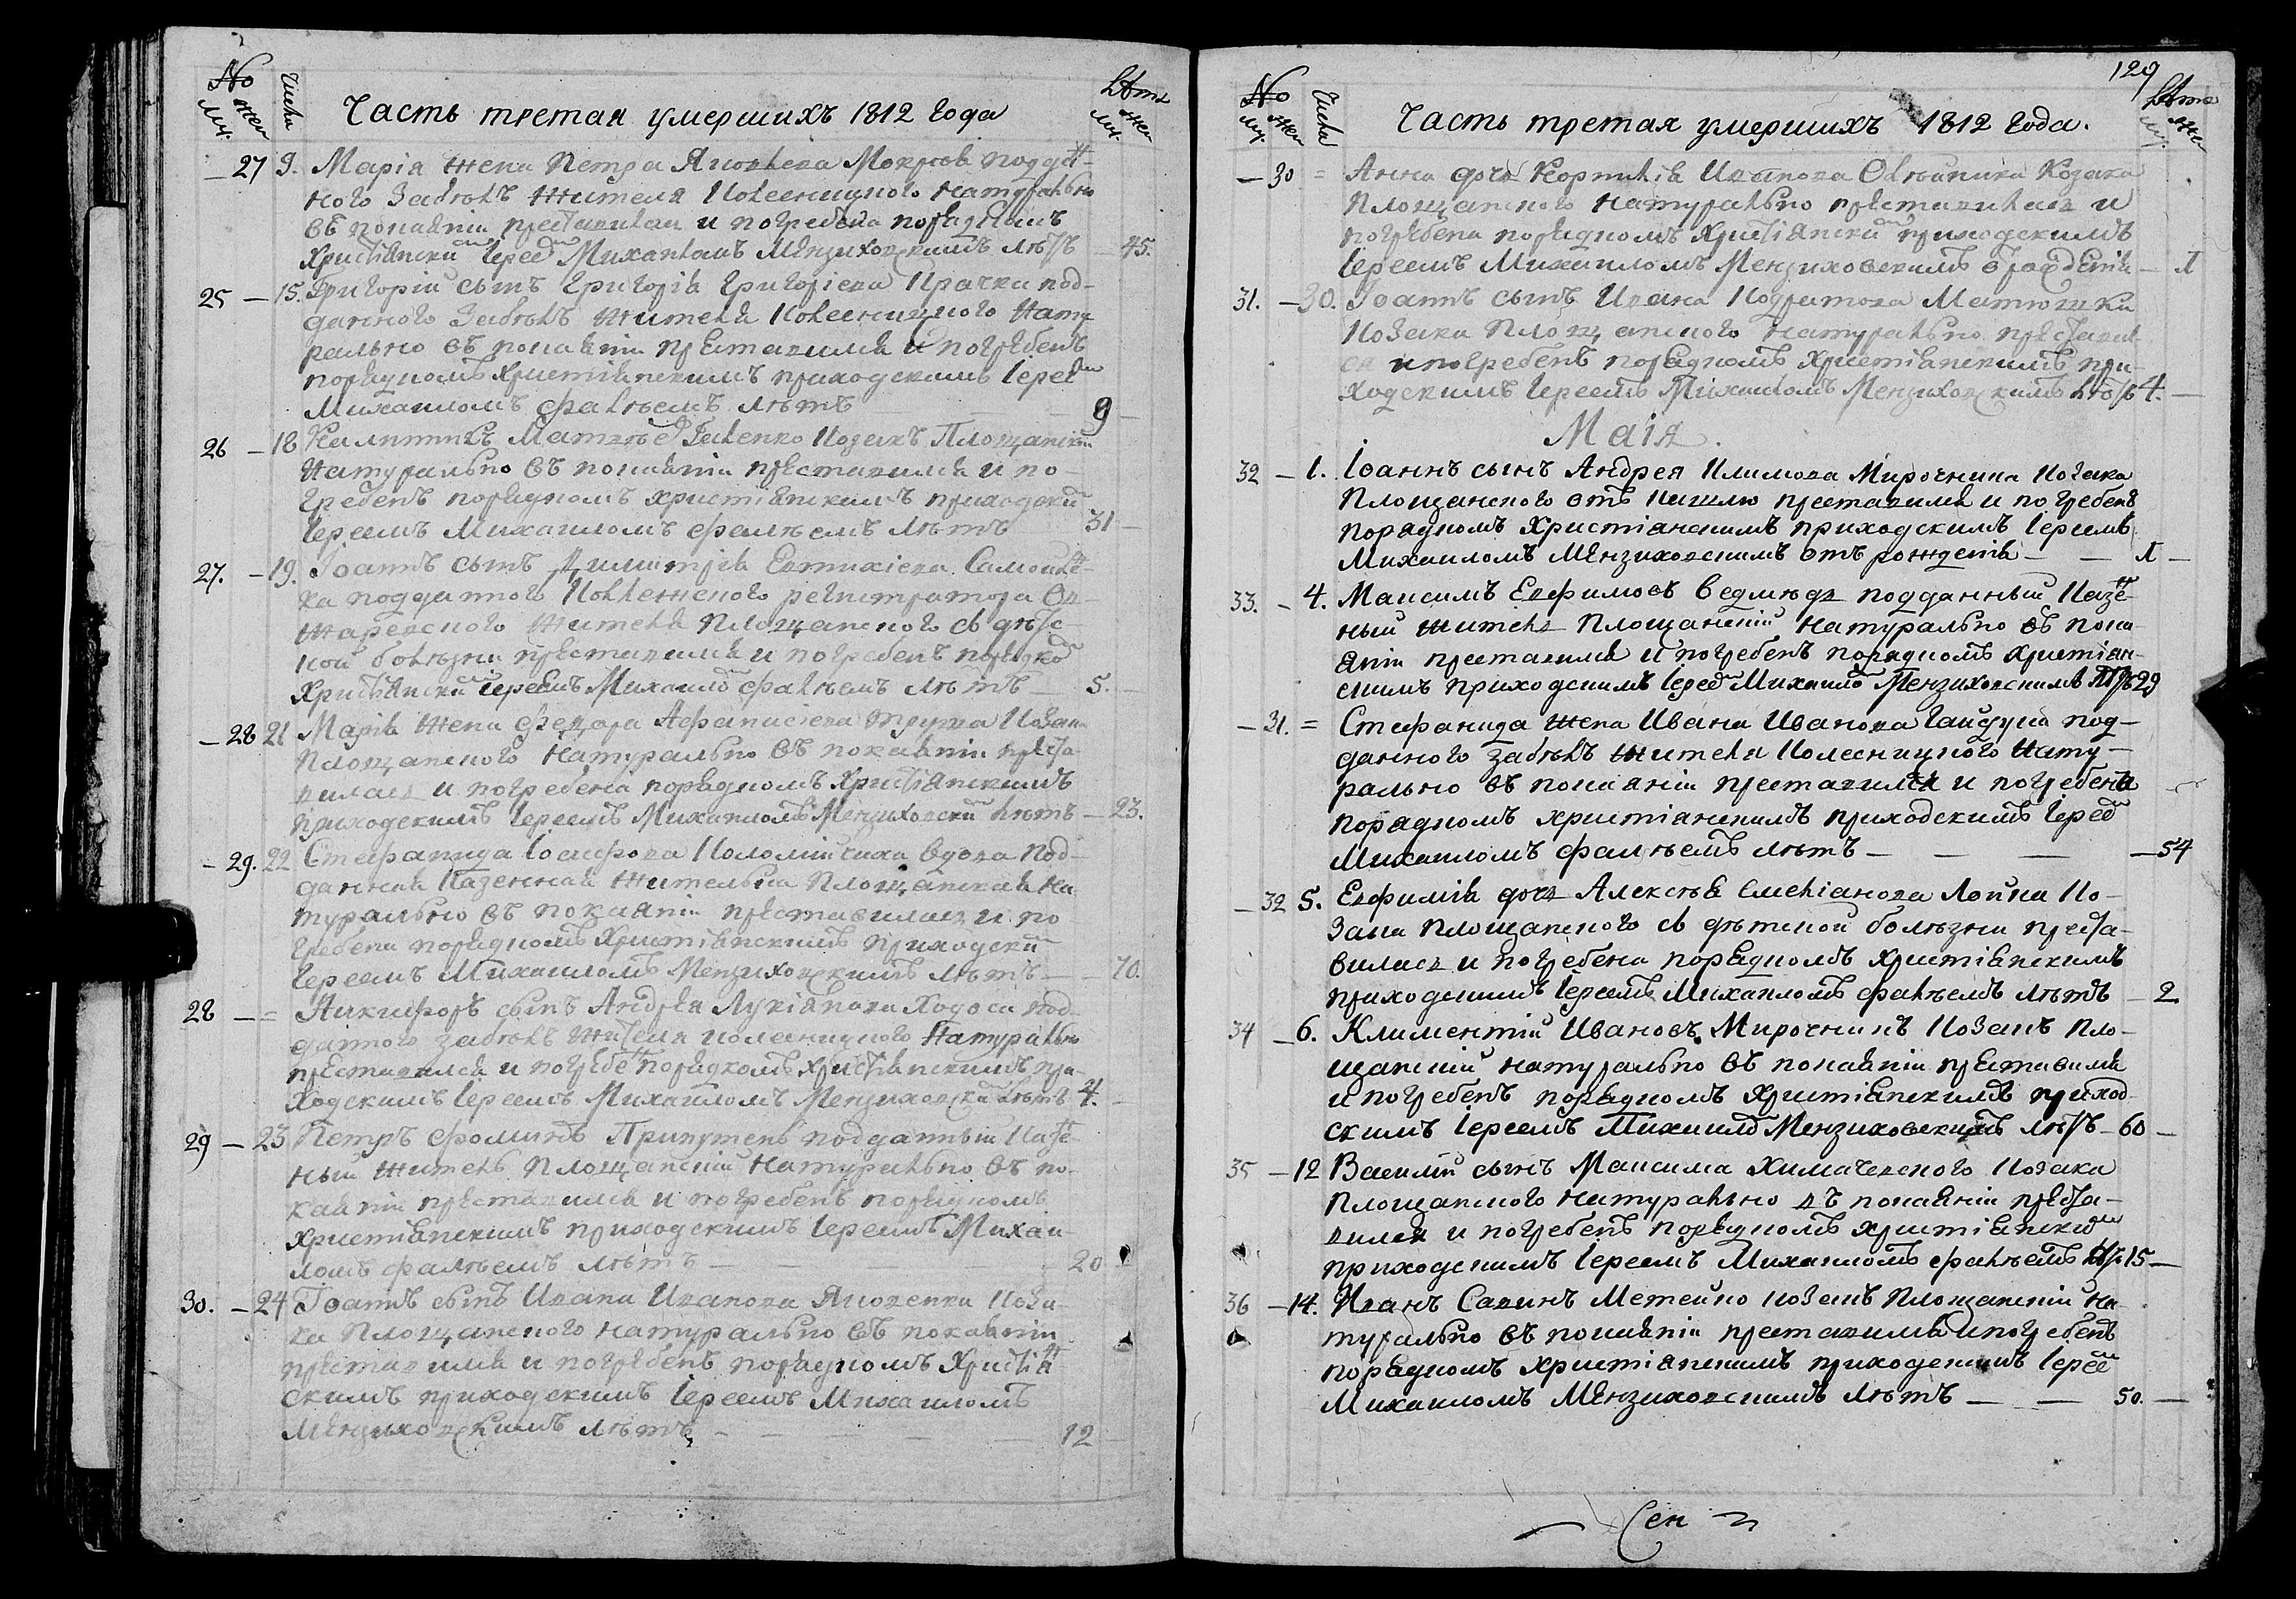 № Числа Часть третая умершихъ 1812 года Лѣта
му. жен му. жен
— 27 9. Марія жена Петра Яковлева поддан-
ного Забѣлѣ жителя Колесницкого натурально
въ покаяніи преставилась и погребена порядкомъ
христіянскимъ Іереемъ Михаиломъ Мензиховскимъ лѣтъ — 45.
25 — 15. Григорій сынъ Григорія Григоріева Крачка под-
данного Забѣлѣ жителя Колесницкого нату-
рально въ покаяніи преставился и погребенъ
порядкомъ христіянскимъ приходскимъ Іереемъ
Михаиломъ Фалѣемъ лѣтъ 9 —
26 — 18 Козакъ Площанскій
натурально въ покаяніи преставился и по-
гребенъ порядкомъ христіянскимъ приходскимъ
Іереемъ Михаиломъ Фалѣемъ лѣтъ 31 —
27. — 19. Іоаннъ сынъ Димитрія Евтихіева
подданного Коллежского регистратора
жителя Площанского въ дѣтс-
кой болѣзни преставился и погребенъ порядкомъ
христіянскимъ Іереемъ Михаиломъ Фалѣемъ лѣтъ — 5. —
— 28 21 Марія жена Федора Афанасіева Козака
Площанского натурально въ покаяніи преста-
вилась и погребена порядкомъ христіянскимъ
приходскимъ Іереемъ Михаиломъ Мензиховскимъ лѣтъ — 23.
— 29. 22 Стефанида Іосифова Коломійчиха вдова под-
данная Казенная жителька Площанская на-
турально въ покаяніи преставилась и по-
гребена порядкомъ христіянскимъ приходскимъ
Іереемъ Михаиломъ Мензиховскимъ лѣтъ — 70.
28 — = Никифоръ сынъ Андрея Лукіянова Ходоса под-
данного Забѣлѣ жителя Колесницкого натурально
преставился и погребенъ порядкомъ христіянскимъ при-
ходскимъ Іереемъ Михаиломъ Мензиховскимъ лѣтъ 4. —
29 — 23 Петръ Фоминъ Припутень подданный Казен-
ный житель Площанскій натурально въ по-
каяніи преставился и погребенъ порядкомъ
христіянскимъ приходскимъ Іереемъ Михаи-
ломъ Фалѣемъ лѣтъ — 20
30. — 24 Іоаннъ сынъ Ивана Иванова Яковенка Коза-
ка Площанского натурально въ покаяніи
преставился и погребенъ порядкомъ христіян-
скимъ приходскимъ Іереемъ Михаиломъ
Мензиховскимъ лѣтъ — — — 12
129
№ Числа Часть третая умершихъ 1812 года. Лѣта
му. жен му. жен
— 30 = Анна дочь Корнилія Иванова Олѣйника Козака
Площанского натурально преставилась и
погребена порядкомъ христіянскимъ приходскимъ
Іереемъ Михаиломъ Мензиховскимъ отъ рожденія — 1
31. — 30. Іоаннъ сынъ Ивана Кодратова Матюшки
Козака Площанского натурально преставил-
ся и погребенъ порядкомъ христіянскимъ при-
ходскимъ Іереемъ Михаиломъ Мензиховскимъ лѣтъ 4. —
Маія.
32 — 1. Іоаннъ сынъ Андрея Климова Мирочника Козака
Площанского отъ кашлю преставился и погребенъ
порядкомъ Христіанскимъ приходскимъ Іереемъ
Михаиломъ Мензиховскимъ отъ рожденія — — 1 —
33. — 4. Максимъ Евфимовъ Ведмюдъ подданный Казен-
ный житель Площанскій натурально въ пока-
яніи преставился и погребенъ порядкомъ христіан-
скимъ приходскимъ Іереемъ Михаиломъ Мензиховскимъ лѣтъ 29
— 31. = Стефанида жена Ивана Иванова Гайдука под-
данного Забѣлѣ жителя Колесницкого нату-
рально въ покаяніи преставилася и погребена
порядкомъ христіанскимъ приходскимъ Іереемъ
Михаиломъ Фалѣемъ лѣтъ — — — — 54
— 32 5. Евфимія дочь Алексѣя Емеліанова Лойка Ко-
зака Площанского въ дѣтской болѣзни преста-
вилась и погребена порядкомъ христіянскимъ
приходскимъ Іереемъ Михаиломъ Фалѣемъ лѣтъ — 2
34 — 6. Климентій Ивановъ Мирочникъ Козакъ Пло-
щанскій натурально въ покаяніи преставился
и погребенъ порядкомъ христіянскимъ приход-
скимъ Іереемъ Михаиломъ Мензиховскимъ лѣтъ — 60 —
35 — 12 Василій сынъ Максима Химачевского Козака
Площанского натурально въ покаяніи преста-
вился и погребенъ порядкомъ христіянскимъ
приходскимъ Іереемъ Михаиломъ Фалѣемъ лѣтъ 15 —
36 — 14. Иванъ Савинъ Метейко Козакъ Площанскій на-
турально въ покаяніи преставился и погребенъ
порядкомъ христіянскимъ приходскимъ Іереемъ
Михаиломъ Мензиховскимъ лѣтъ — — 50. —